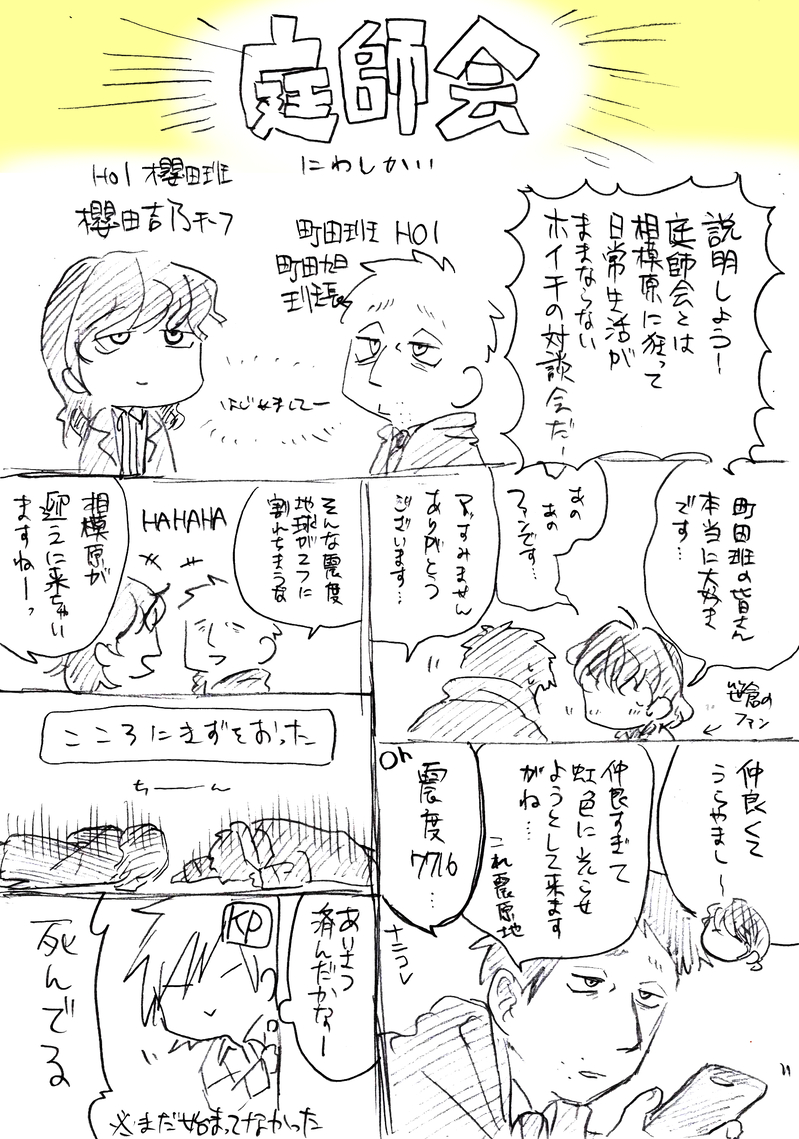 庭師会
にわしかい
HO1 櫻田班
櫻田吉乃チーフ
町田班 HO1
町田旭
班長
説明しよう!
庭師会とは
相模原に狂って
日常生活が
ままならない
ホイチの対談会だー
はじめましてー
町田班の皆さん
本当に大好き
です…
あの
あの
ファンです…
アッすみません
ありがとう
ございます…
笹倉の
ファン
仲良くて
うらやまし〜
仲良すぎて
虹色に光らせ
ようとして来ます
がね……
これ震原地
Oh
震度
7716
…
ナニコレ
そんな震度
地球が2つに
割れちまうな
HAHAHA
相模原が
迎えに来ちゃい
ますねーっ
こころにきずをおった
ちーーん
あいさつ
済んだかなー
KP
死んでる
※まだ始まってなかった